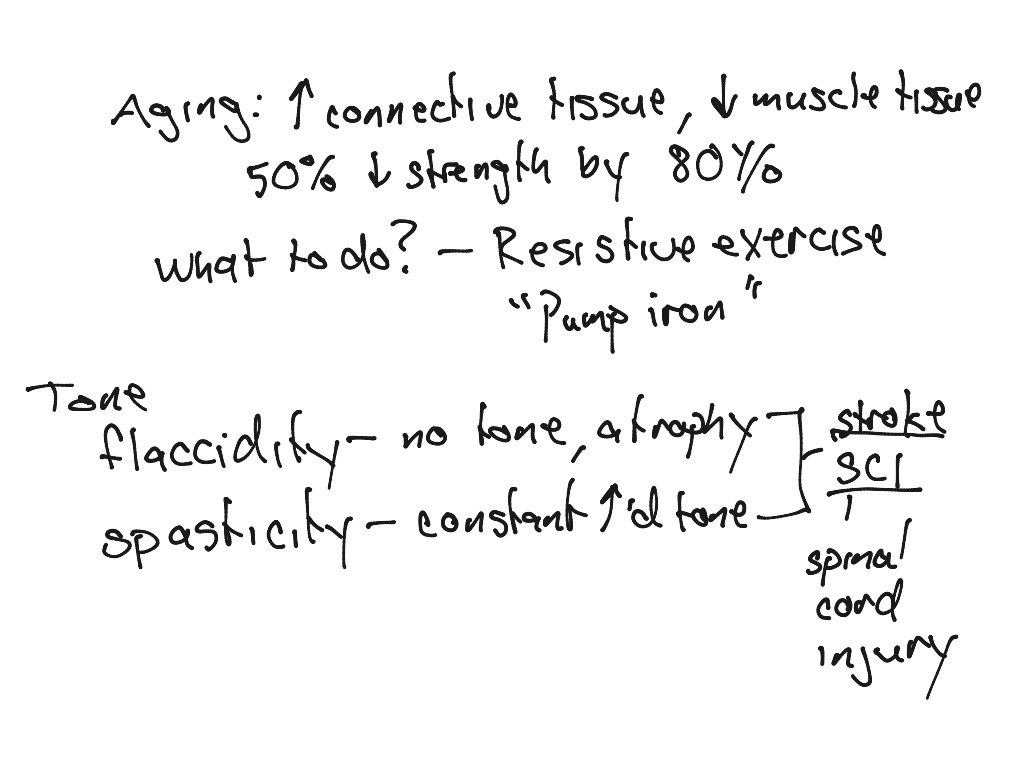 Aging: ↑ connective tissue, ↓ muscle tissue
50% ↓ strength by 80%
what to do? - Resistive exercise
"Pump iron"
Tone
flaccidity - no tone, atrophy
stroke
SCI
spasticity - constant ↑'d tone
spinal
cord
injury